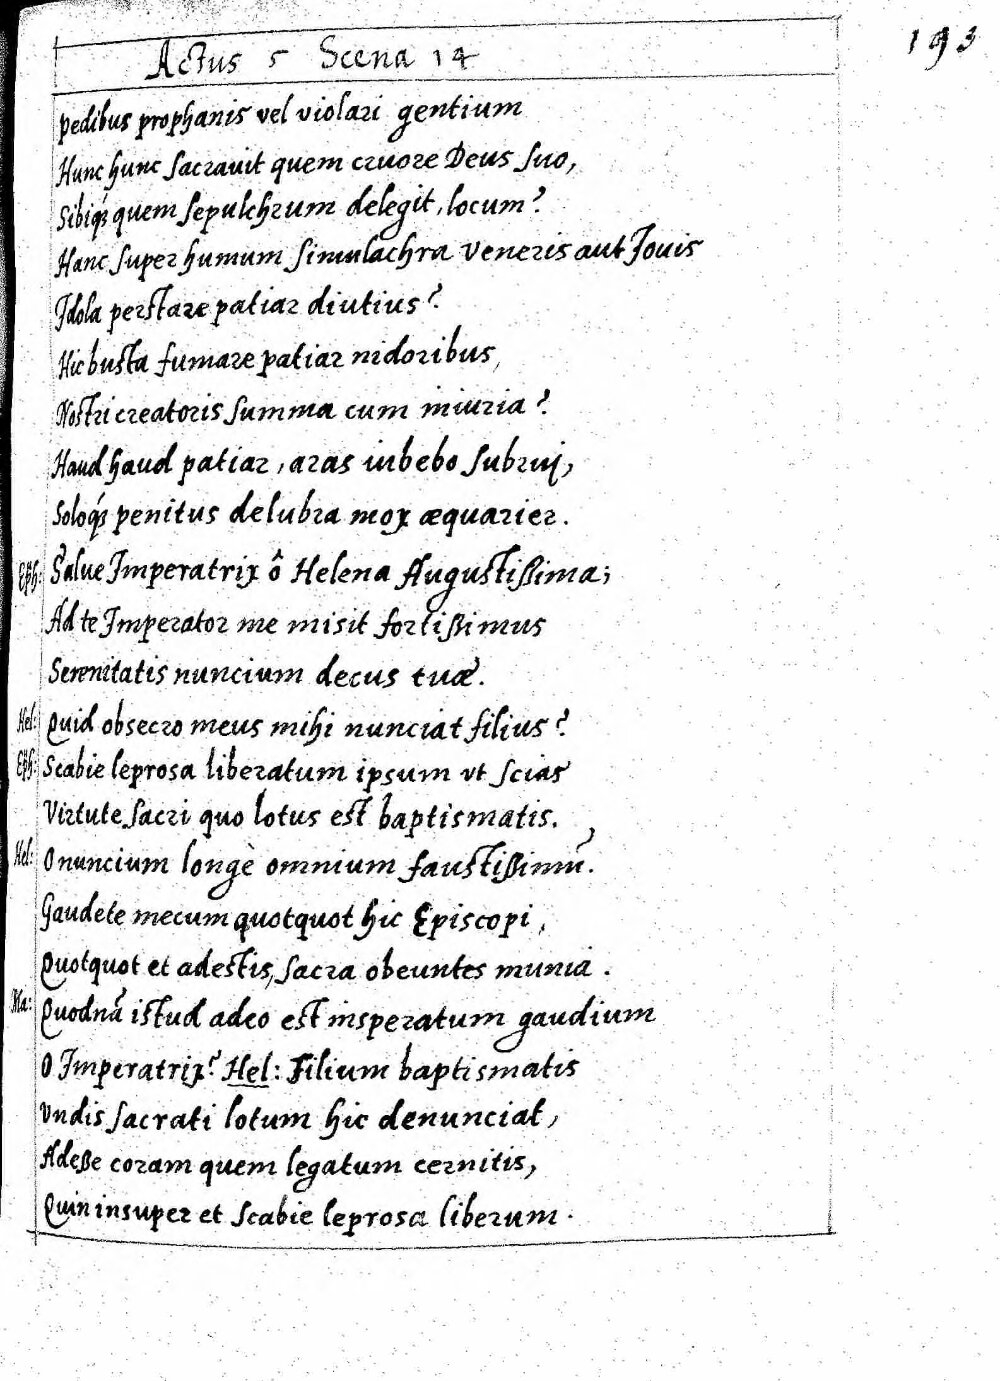 193
Actus 5 Scena 14
pedibus prophanis vel violari gentium
Hunc hunc sacrauit quem cruore Deus suo,
Sibiq́ quem sepulchrum delegit, locum?
Hanc super humum simulachra Veneris aut Jouis
Idola perstare patiar diutius?
Hic busta fumare patiar nidoribus,
Nostri creatoris summa cum iniuria?
Haud haud patiar, aras iubebo subruj,
Soloq́ penitus delubra mox æquarier.
Eph: Salue Imperatrix ô Helena Augustißima;
Ad te Imperator me misit fortißimus
Serenitatis nuncium decus tuæ.
Hel: Quid obsecro meus mihi nunciat filius?
Eph: Scabie leprosa liberatum ipsum vt scias
Virtute sacri quo lotus est baptismatis.
Hel: O nuncium longè omnium faustißimũ.
Gaudete mecum quotquot hic Episcopi,
Quotquot et adestis, sacra obeuntes munia.
Ma: Quodnã istud adeo est insperatum gaudium
O Imperatrix? Hel: Filium baptismatis
Vndis sacrati lotum hic denunciat,
Adeße coram quem legatum cernitis,
Quin insuper et scabie leprosa liberum.